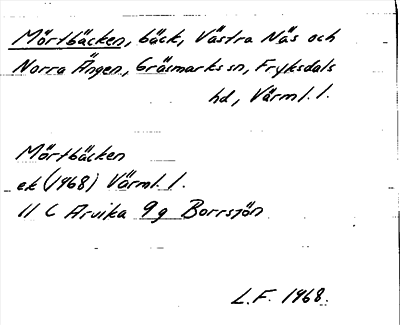 Mörtbäcken, bäck, Västra Näs och
Norra Ängen, Gräsmarks sn, Fryksdals
hd, Värml. l.
Mörtbäcken
ek (1968) Värml. l.
11 C Arvika 9 g Borrsjön
L.F. 1968.